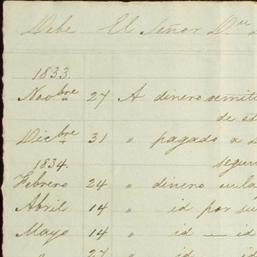 Debe El Señor Dn
1833.
Novbre 27 A dinero remiti
de
Dicbre 31 " pagado a
1834. segun
Febrero 24 " dinero
Abril 14 " id por su
Mayo 14 " id — id
" 27 " id id